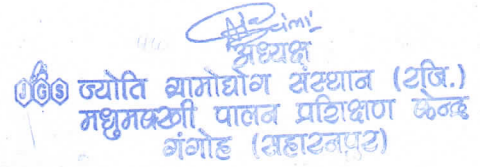 अध्यक्ष
JGS ज्योति ग्रामोद्योग संस्थान (रजि.)
मधुमक्खी पालन प्रशिक्षण केन्द्र
गंगोह (सहारनपुर)